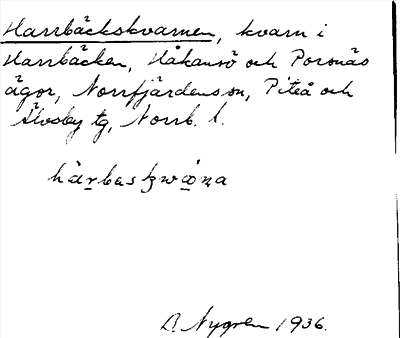 Harrbäckskvarnen, kvarn i
Harrbäcken, Håkansö och Porsnäs
ägor, Norrfjärdens sn, Piteå och
Älvsby tg, Norrb. l.
A. Nygren 1936.